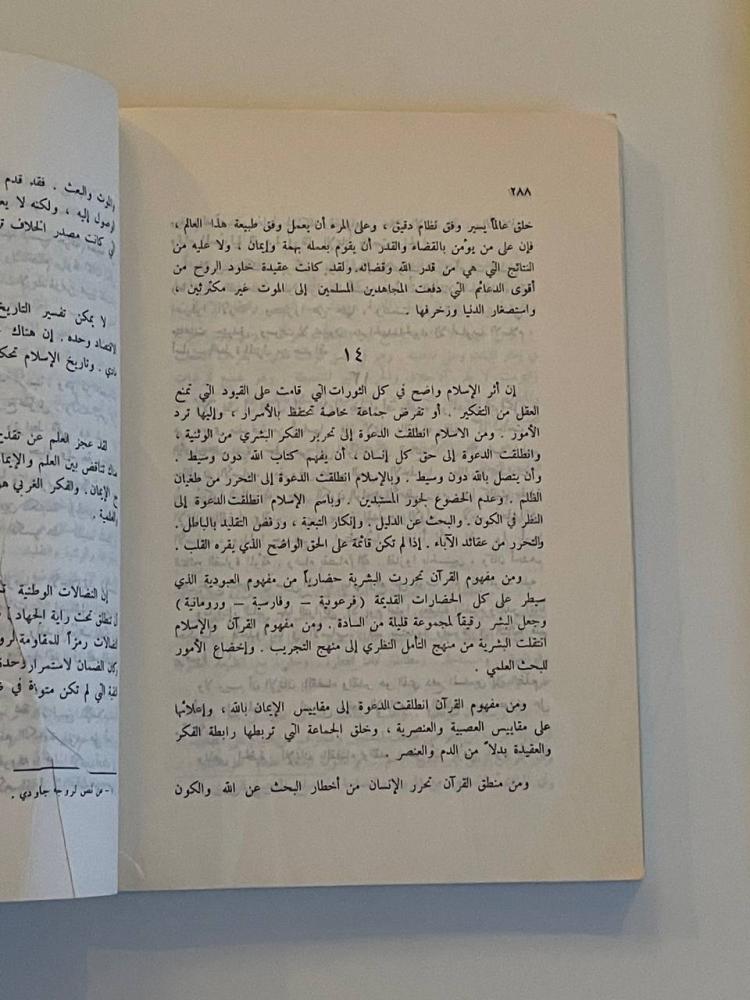 ٢٨٨
خلق عالماً يسير وفق نظام دقيق ، وعلى المرء أن يعمل وفق طبيعة هذا العالم ،
فإن على من يؤمن بالقضاء والقدر أن يقوم بعمله بهمة وإيمان ، ولا عليه من
النتائج التي هي من قدر الله وقضائه. ولقد كانت عقيدة خلود الروح من
أقوى الدعائم التي دفعت المجاهدين المسلمين إلى الموت غير مكترثين ،
واستصغار الدنيا وزخرفها .
١٤
إن أثر الإسلام واضح في كل الثورات التي قامت على القيود التي تمنع
العقل من التفكير . أو تفرض جماعة خاصة تحتفظ بالأسرار ، وإليها ترد
الأمور . ومن الاسلام انطلقت الدعوة إلى تحرير الفكر البشري من الوثنية ،
وانطلقت الدعوة إلى حق كل إنسان ، أن يفهم كتاب الله دون وسيط .
وأن يتصل بالله دون وسيط . وبالإسلام انطلقت الدعوة إلى التحرر من طغيان
الظلم . وعدم الخضوع لجور المستبدين . وباسم الإسلام انطلقت الدعوة إلى
النظر في الكون . والبحث عن الدليل . وإنكار التبعية ، ورفض التقليد بالباطل .
والتحرر من عقائد الآباء . إذا لم تكن قائمة على الحق الواضح الذي يقره القلب .
ومن مفهوم القرآن تحررت البشرية حضارياً من مفهوم العبودية الذي
سيطر على كل الحضارات القديمة (فرعونية – وفارسية – ورومانية)
وجعل البشر رقيقاً لمجموعة قليلة من السادة . ومن مفهوم القرآن والإسلام
انتقلت البشرية من منهج التأمل النظري إلى منهج التجريب . وإخضاع الأمور
للبحث العلمي .
ومن مفهوم القرآن انطلقت الدعوة إلى مقاييس الإيمان بالله ، وإعلائها
على مقاييس العصبية والعنصرية ، وخلق الجماعة التي تربطها رابطة الفكر
والعقيدة بدلاً من الدم والعنصر .
ومن منطق القرآن تحرر الإنسان من أخطار البحث عن الله والكون
والموت والبعث . فقد قدم
الوصول إليه ، ولكنه لا
كانت مصدر الخلاف
لا يمكن تفسير التاريخ
الاقتصاد وحده . إن هناك
وتاريخ الإسلام
لقد عجز العلم عن
تناقض بين العلم
الإيمان . والفكر الغربي
إن النضالات الوطنية
تنطلق تحت راية الجهاد
رمزاً للمقاومة
الضمان لاستمرار
التي لم تكن في
١ – من نص لروجيه جارودي .